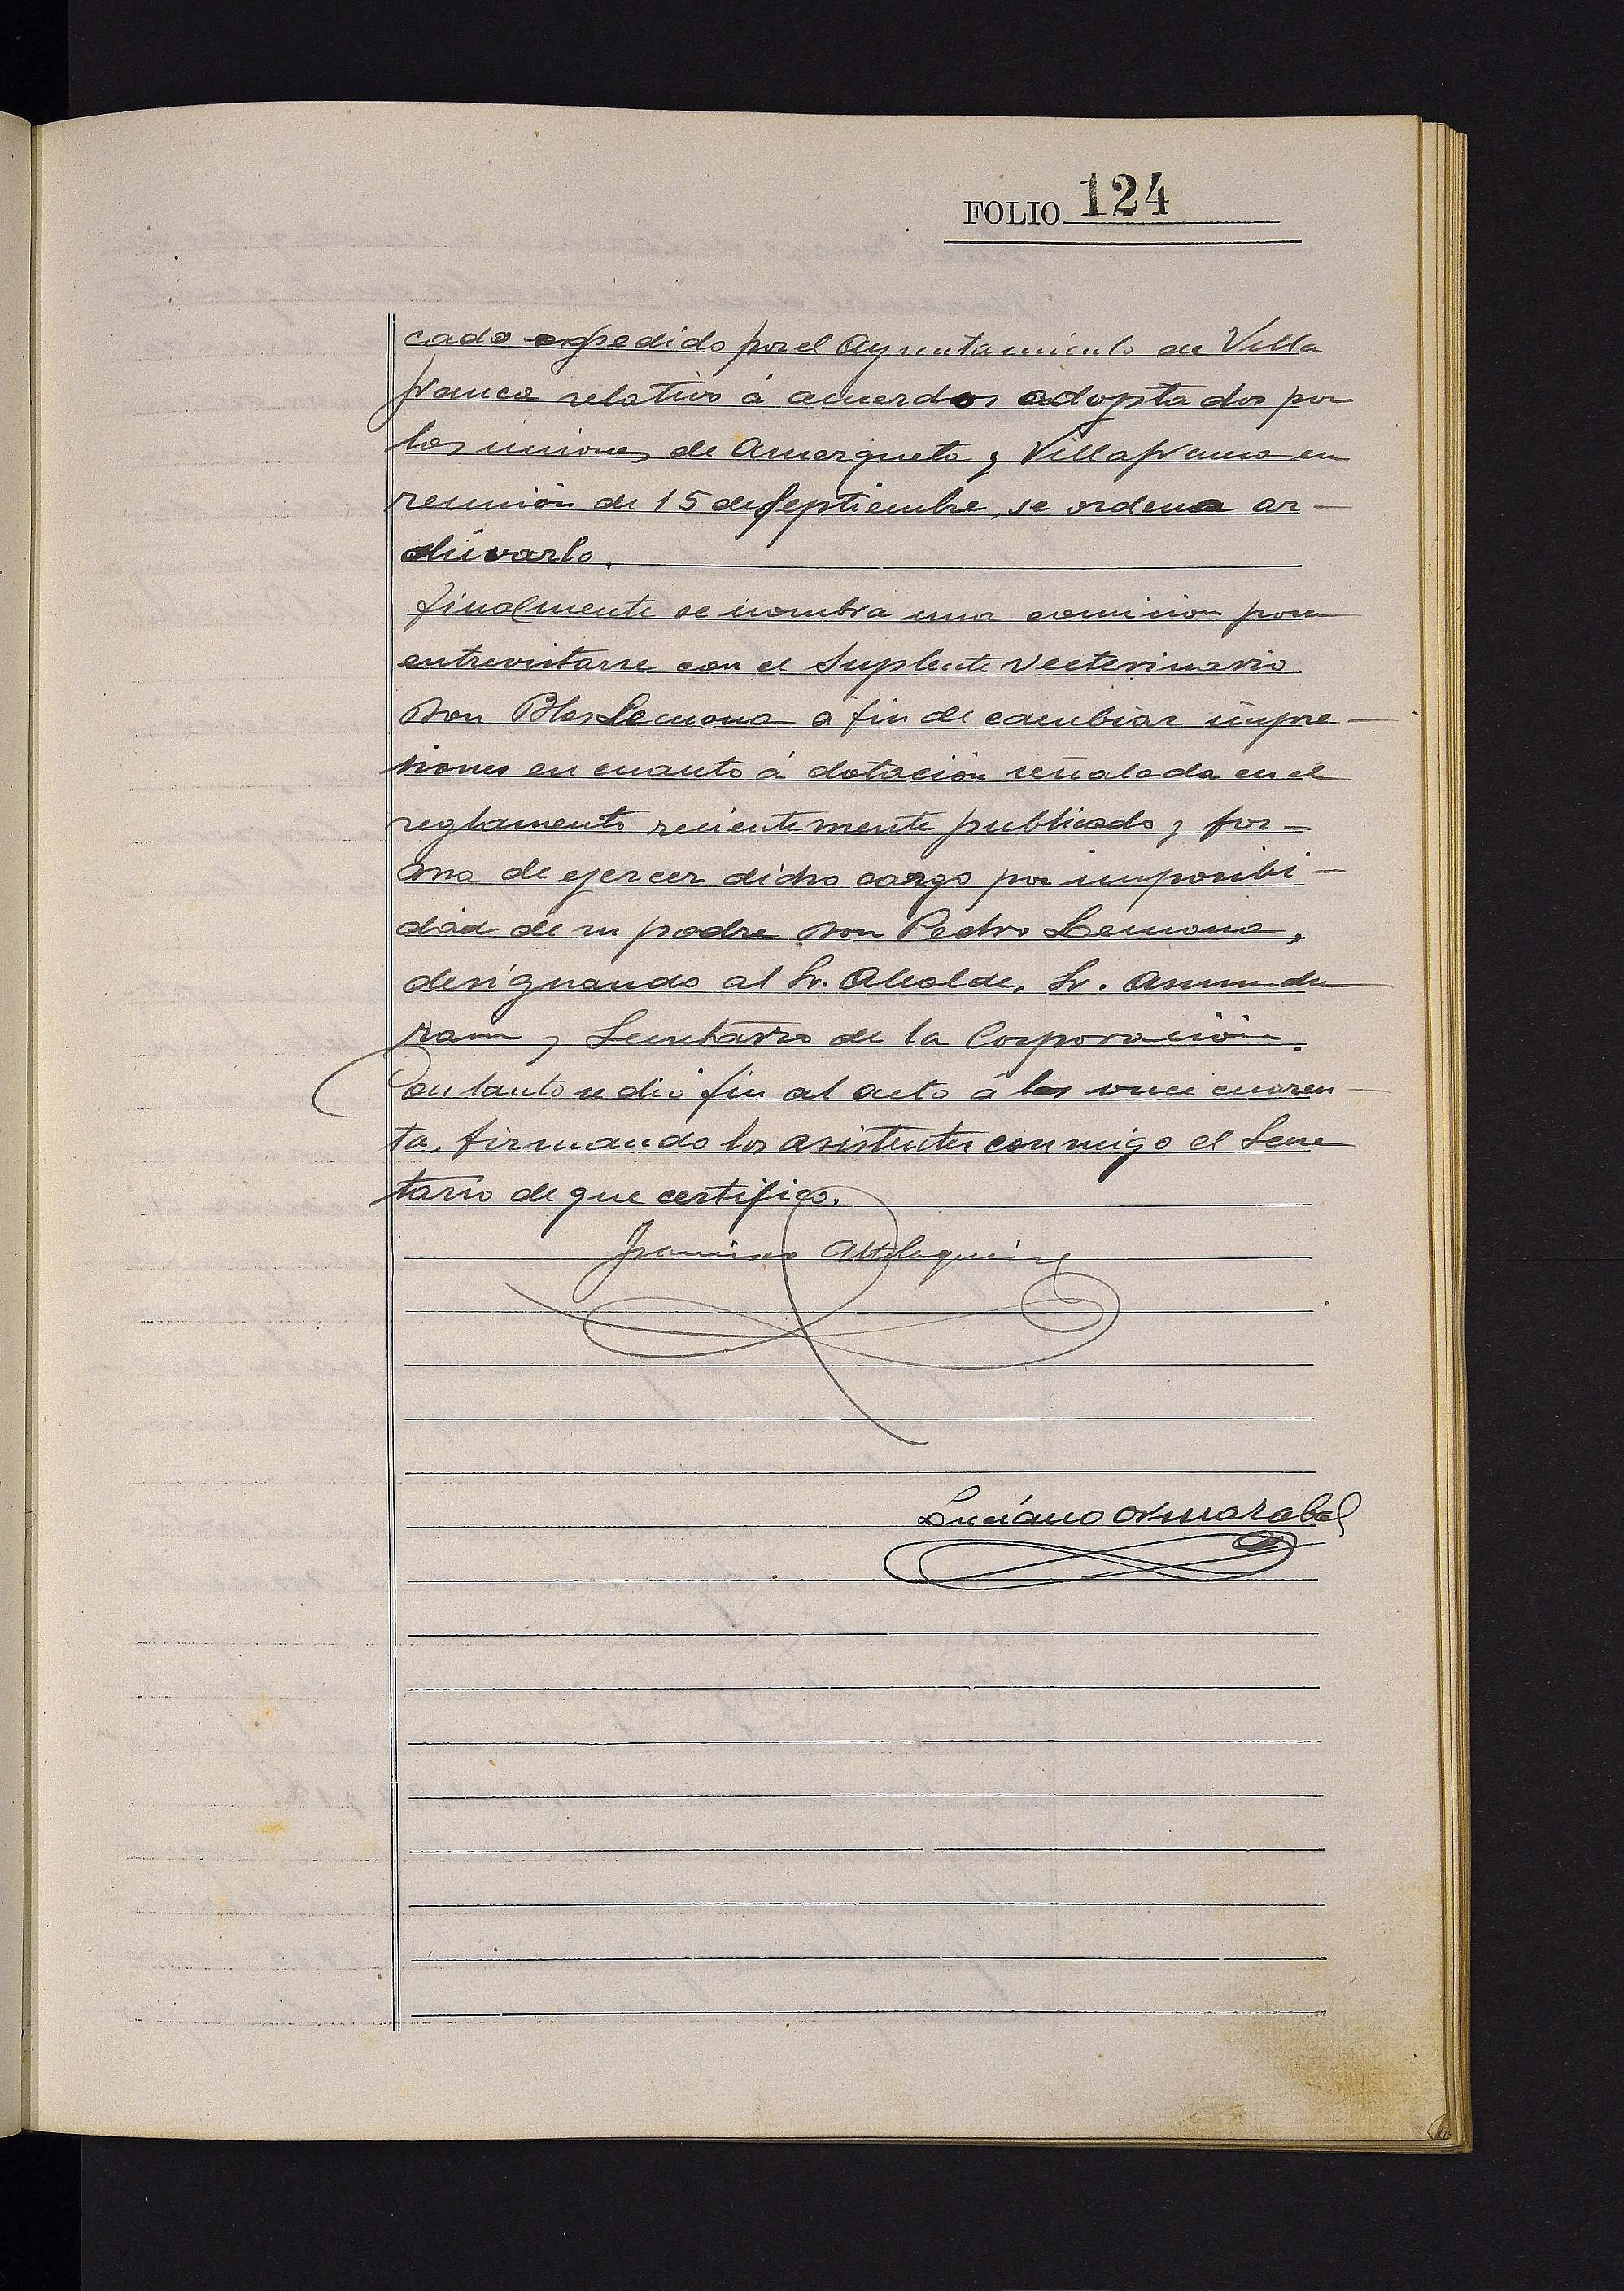 FOLIO 124
cado expedido por el Ayuntamiento de Villa
franca relativo á acuerdos adoptados por
las uniones de Amezqueta y Villafranca en
reunión de 15 de Septiembre, se ordena ar-
chivarlo.
Finalmente se nombra una comision para
entrevistarse con el Suplente Veeterinario
Don Blas Lecuona a fin de cambiar impre-
siones en cuanto á dotación señalada en el
reglamento recientemente publicado y for-
ma de ejercer dicho cargo por imposibi-
dad de su padre Don Pedro Lecuona,
designando al Sr. Alcalde, Sr. Amunda
rain y Secretario de la Corporación.
En tanto se dió fin al acto á las once cuaren-
ta, firmando los asistentes conmigo el Secre
tario de que certifico.
Francisco
Luciano Ormazabal